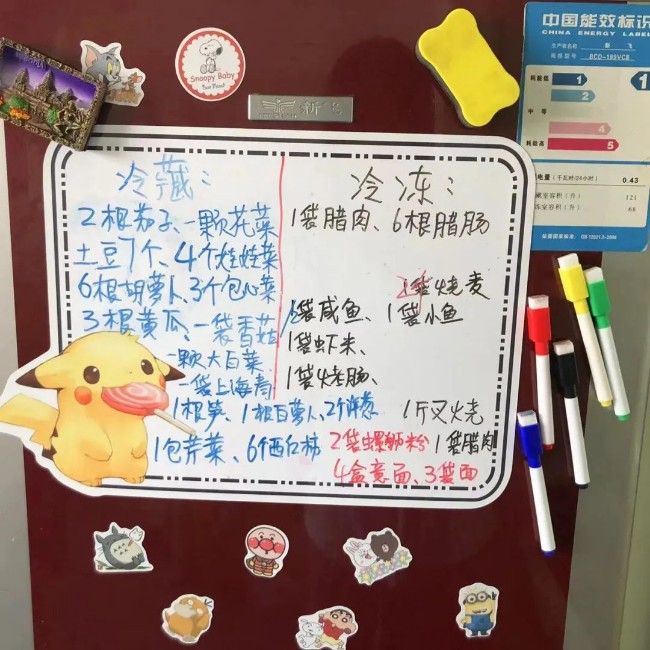 Snoopy Baby
Best Friend
新飞
中国能效标识
CHINA ENERGY LABEL
生产者名称 新 飞
规格型号 BCD-189VCB
耗能低
1
2
中 等
4
耗能高
5
1
0.43
121
68
冷藏：
2根茄子、一颗花菜
土豆7个、4个娃娃菜
6根胡萝卜、3个包心菜
3根黄瓜、一袋香菇
一颗大白菜
一袋上海青
1根笋、1根白萝卜、2个洋葱
1包芹菜、6个西红柿
冷冻：
1袋腊肉、6根腊肠
1袋烧麦
1袋咸鱼、1袋小鱼
1袋虾米、
1袋烤肠、
1斤叉烧
2袋螺蛳粉、1袋腊肉
4盒意面、3袋面